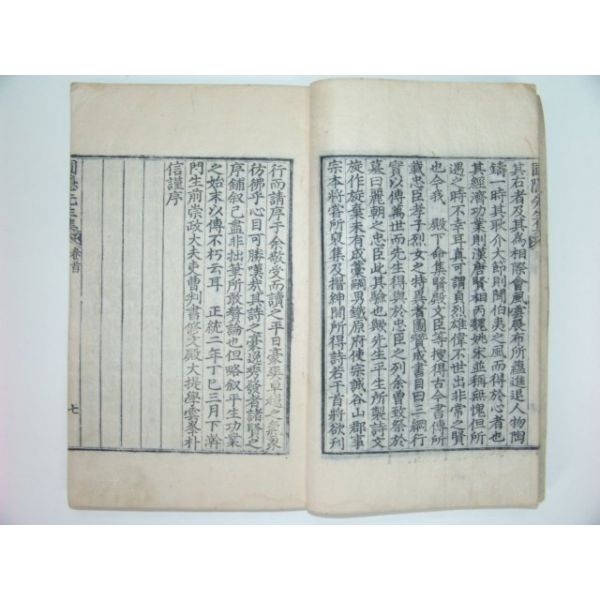 其右者及其為相際會風雲展布所蘊進退人物陶
鑄一時其耿介大節則聞伯夷之風而得於心者也
其經濟功業則漢唐賢相丙魏姚宋並稱無愧但所
遇之時不幸耳真可謂貞烈雄偉不世出非常之賢
也今我 殿下命集賢殿文臣等搜得古今書傳所
載忠臣孝子烈女之特異者圖贊成書目曰三綱行
實以傳萬世而先生得與於忠臣之列余曹致祭於
墓曰麗朝之忠臣此其驗也歟先生平生所製詩文
旋作旋葉未有成藁嗣男鐵原府使宗誠谷山郡事
宗本將嘗所裒集及搢紳間所得詩若干首將欲刊
行而請序于余敬受而讀之平日豪爽卓越之氣象
彷彿乎心目可勝嘆哉其詩之豪逸秀發者諸賢之
序鋪叙已盡非拙筆所敢贅論也但略叙平生功業
之始末以傳不朽云耳 正統二年丁巳三月下澣
門生前宗政大夫吏曹判書修文殿大提學雲峯朴
信謹序
卷首
七